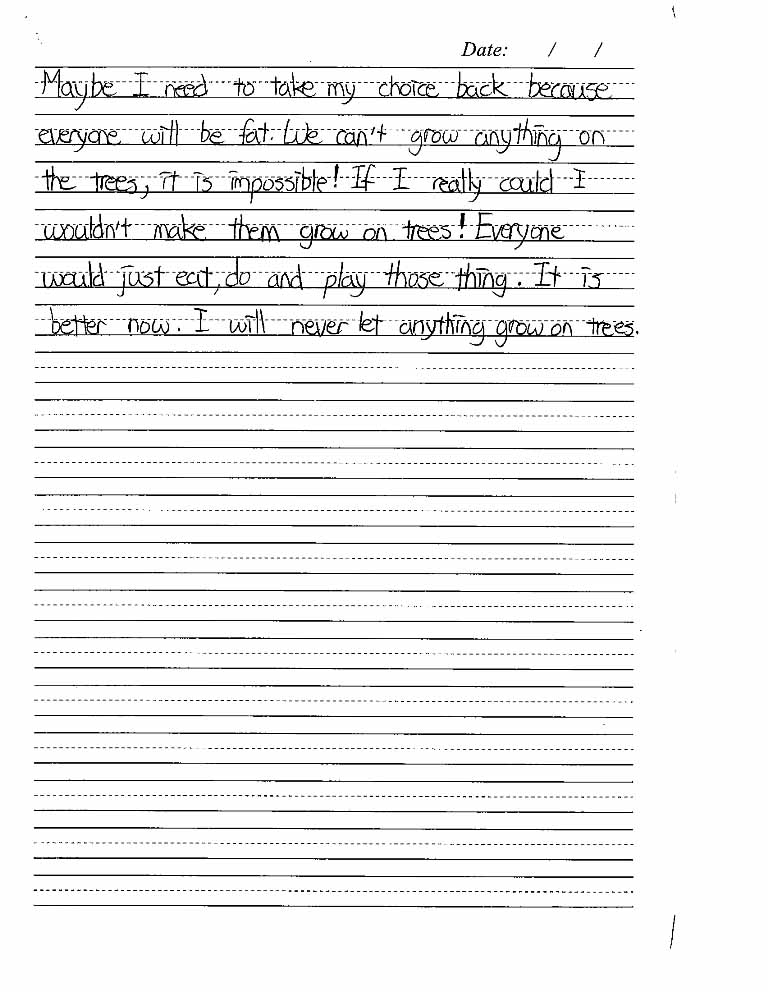 Date: / /
Maybe I need to take my choice back because
everyone will be fat. We can't grow anything on
the trees, it is impossible! If I really could I
wouldn't make them grow on trees! Everyone
would just eat, do and play those thing. It is
better now. I will never let anything grow on trees.